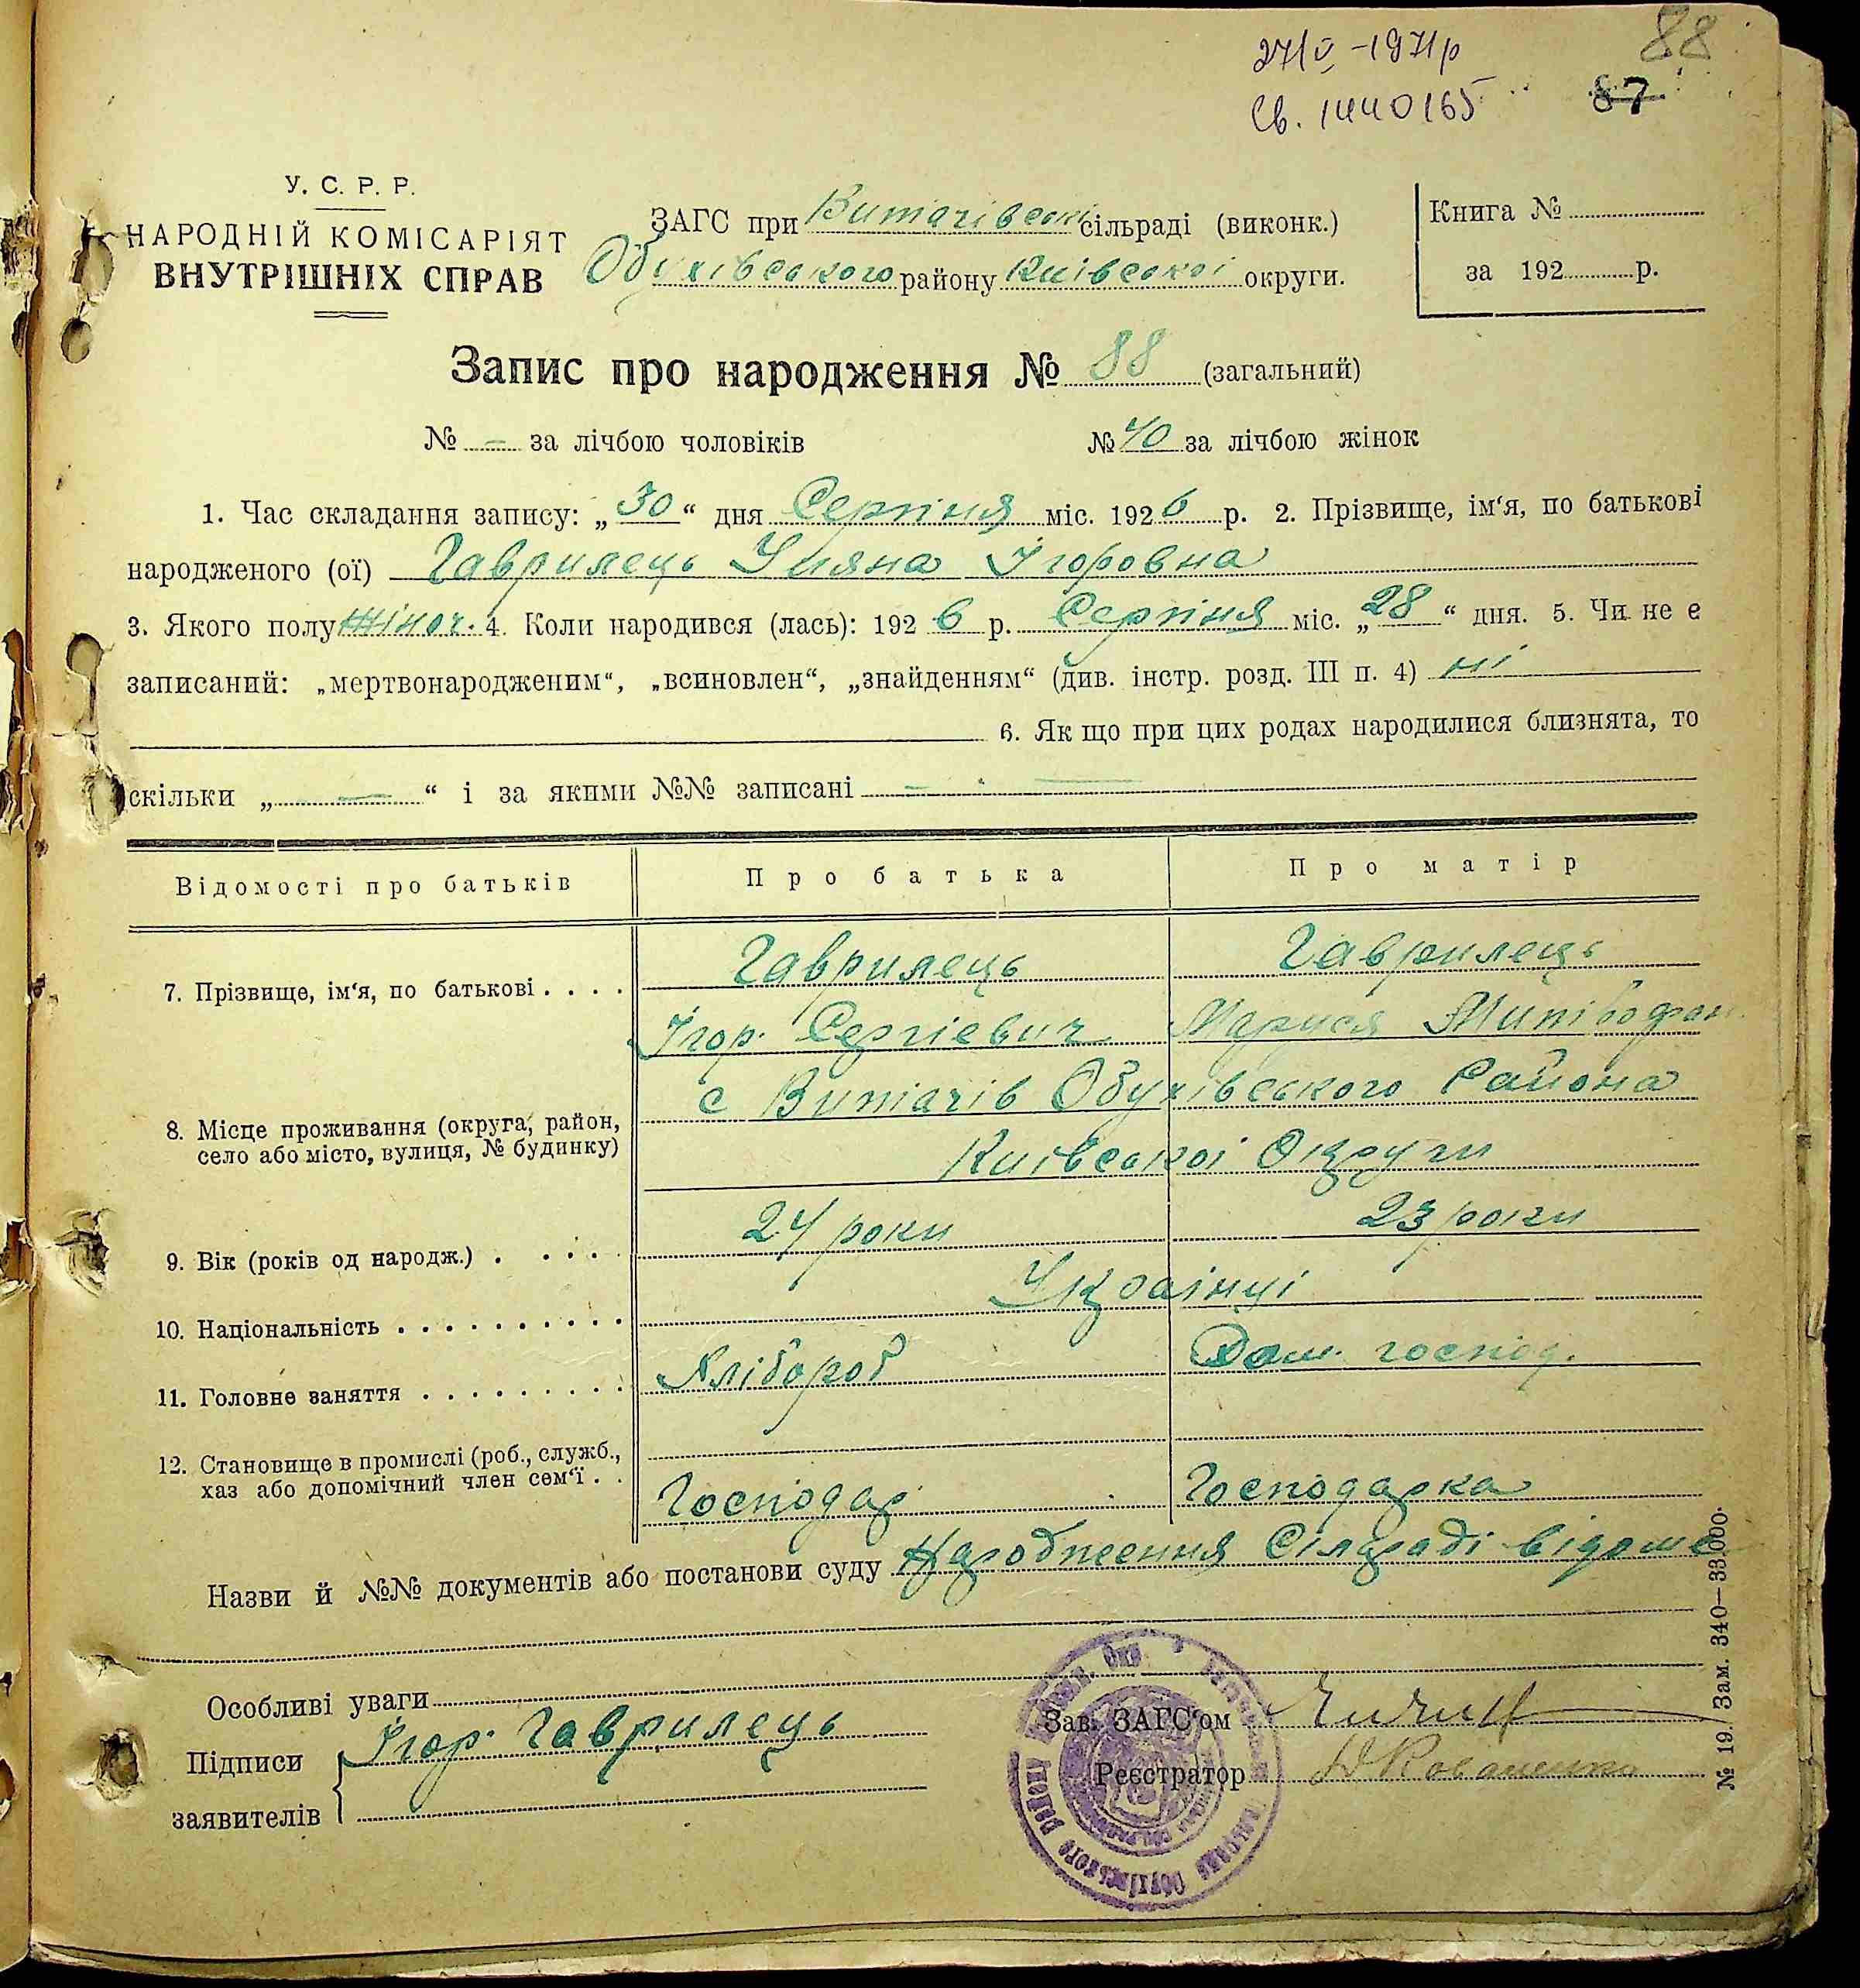 27/V -1971р
88
Св. 1440165
87
У. С. Р. Р.
НАРОДНІЙ КОМІСАРІЯТ
ВНУТРІШНІХ СПРАВ
ЗАГС при Витачівські сільраді (виконк.)
Обухівського району Київської округи.
Книга №
за 192 р.
Запис про народження № 88 (загальний)
№ - за лічбою чоловіків № 40 за лічбою жінок
1. Час складання запису: „30“ дня Серпіня міс. 1926 р. 2. Прізвище, ім‘я, по батькові
народженого (ої) Гаврилець Уляна Ігоровна
3. Якого полу Жіноч. 4. Коли народився (лась): 1926 р. Серпіня міс. „28“ дня. 5. Чи не є
записаний: „мертвонародженим“, „всиновлен“, „знайденням“ (див. інстр. розд. III п. 4) ні
6. Як що при цих родах народилися близнята, то
скільки „ — “ і за якими №№ записані — —
Відомості про батьків Про батька Про матір
7. Прізвище, ім‘я, по батькові . . . .
Гаврилець Гаврилець
Ігор. Сергієвич Маруся
8. Місце проживання (округа, район,
село або місто, вулиця, № будинку)
с Витачів Обухівського Района
Київської Округи
9. Вік (років од народж.) . . . . 24 роки 23 роки
10. Національність . . . . . . . . . . Українці
11. Головне заняття . . . . . . . . . Хлібороб Дом. господ.
12. Становище в промислі (роб., служб.,
хаз або допомічний член сем‘ї . .
Господар Господарка
Назви й №№ документів або постанови суду Народження Сілраді відоме
Особливі уваги
Підписи
заявителів
Ігор. Гаврилець
Зав. ЗАГС‘ом
Реєстратор
№ 19. Зам. 340—33.000.